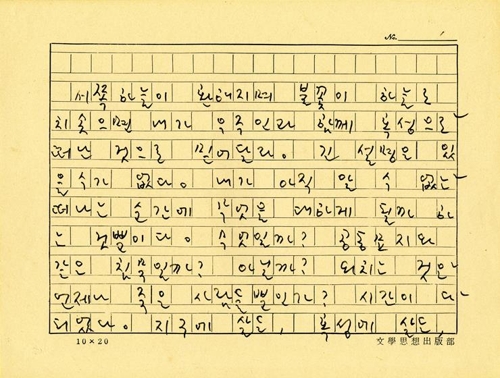 No.
서쪽 하늘이 환해지며 불꽃이 하늘로
치솟으면 내가 우주인과 함께 혹성으로
떠난 것으로 믿어달라. 긴 설명은 있
을 수가 없다. 내가 아직 알 수 없는
떠나는 순간에 무엇을 대하게 될까 하
는 것뿐이다. 무엇일까? 공동묘지와
같은 침묵일까? 아닐까? 외치는 것은
언제나 죽은 사람들뿐인가? 시간이 다
되었다. 지구에 살든, 혹성에 살든,
10×20
文學思想出版部